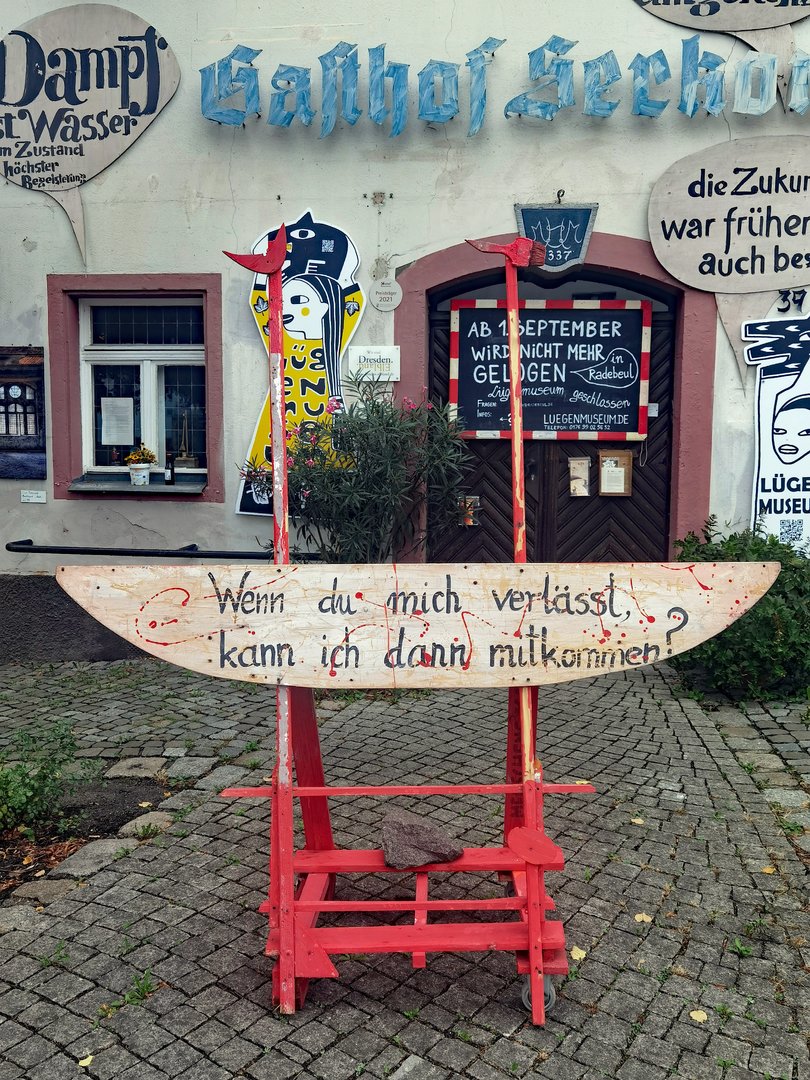 Dampf
ist Wasser
im Zustand
höchster
Begeisterung
Gasthof Serko
die Zukun
war früher
auch bes
337
37
Preisträger
2021
Dresden.
AB 1. SEPTEMBER
WIRD NICHT MEHR
GELOGEN
in
Radebeul
Lügenmuseum geschlossen
FRAGEN:
INFOS:
LUEGENMUSEUM.DE
TELEFON: 0176 99 02 56 52
LÜGEN
MUSEU
Wenn du mich verlässt,
kann ich dann mitkommen?